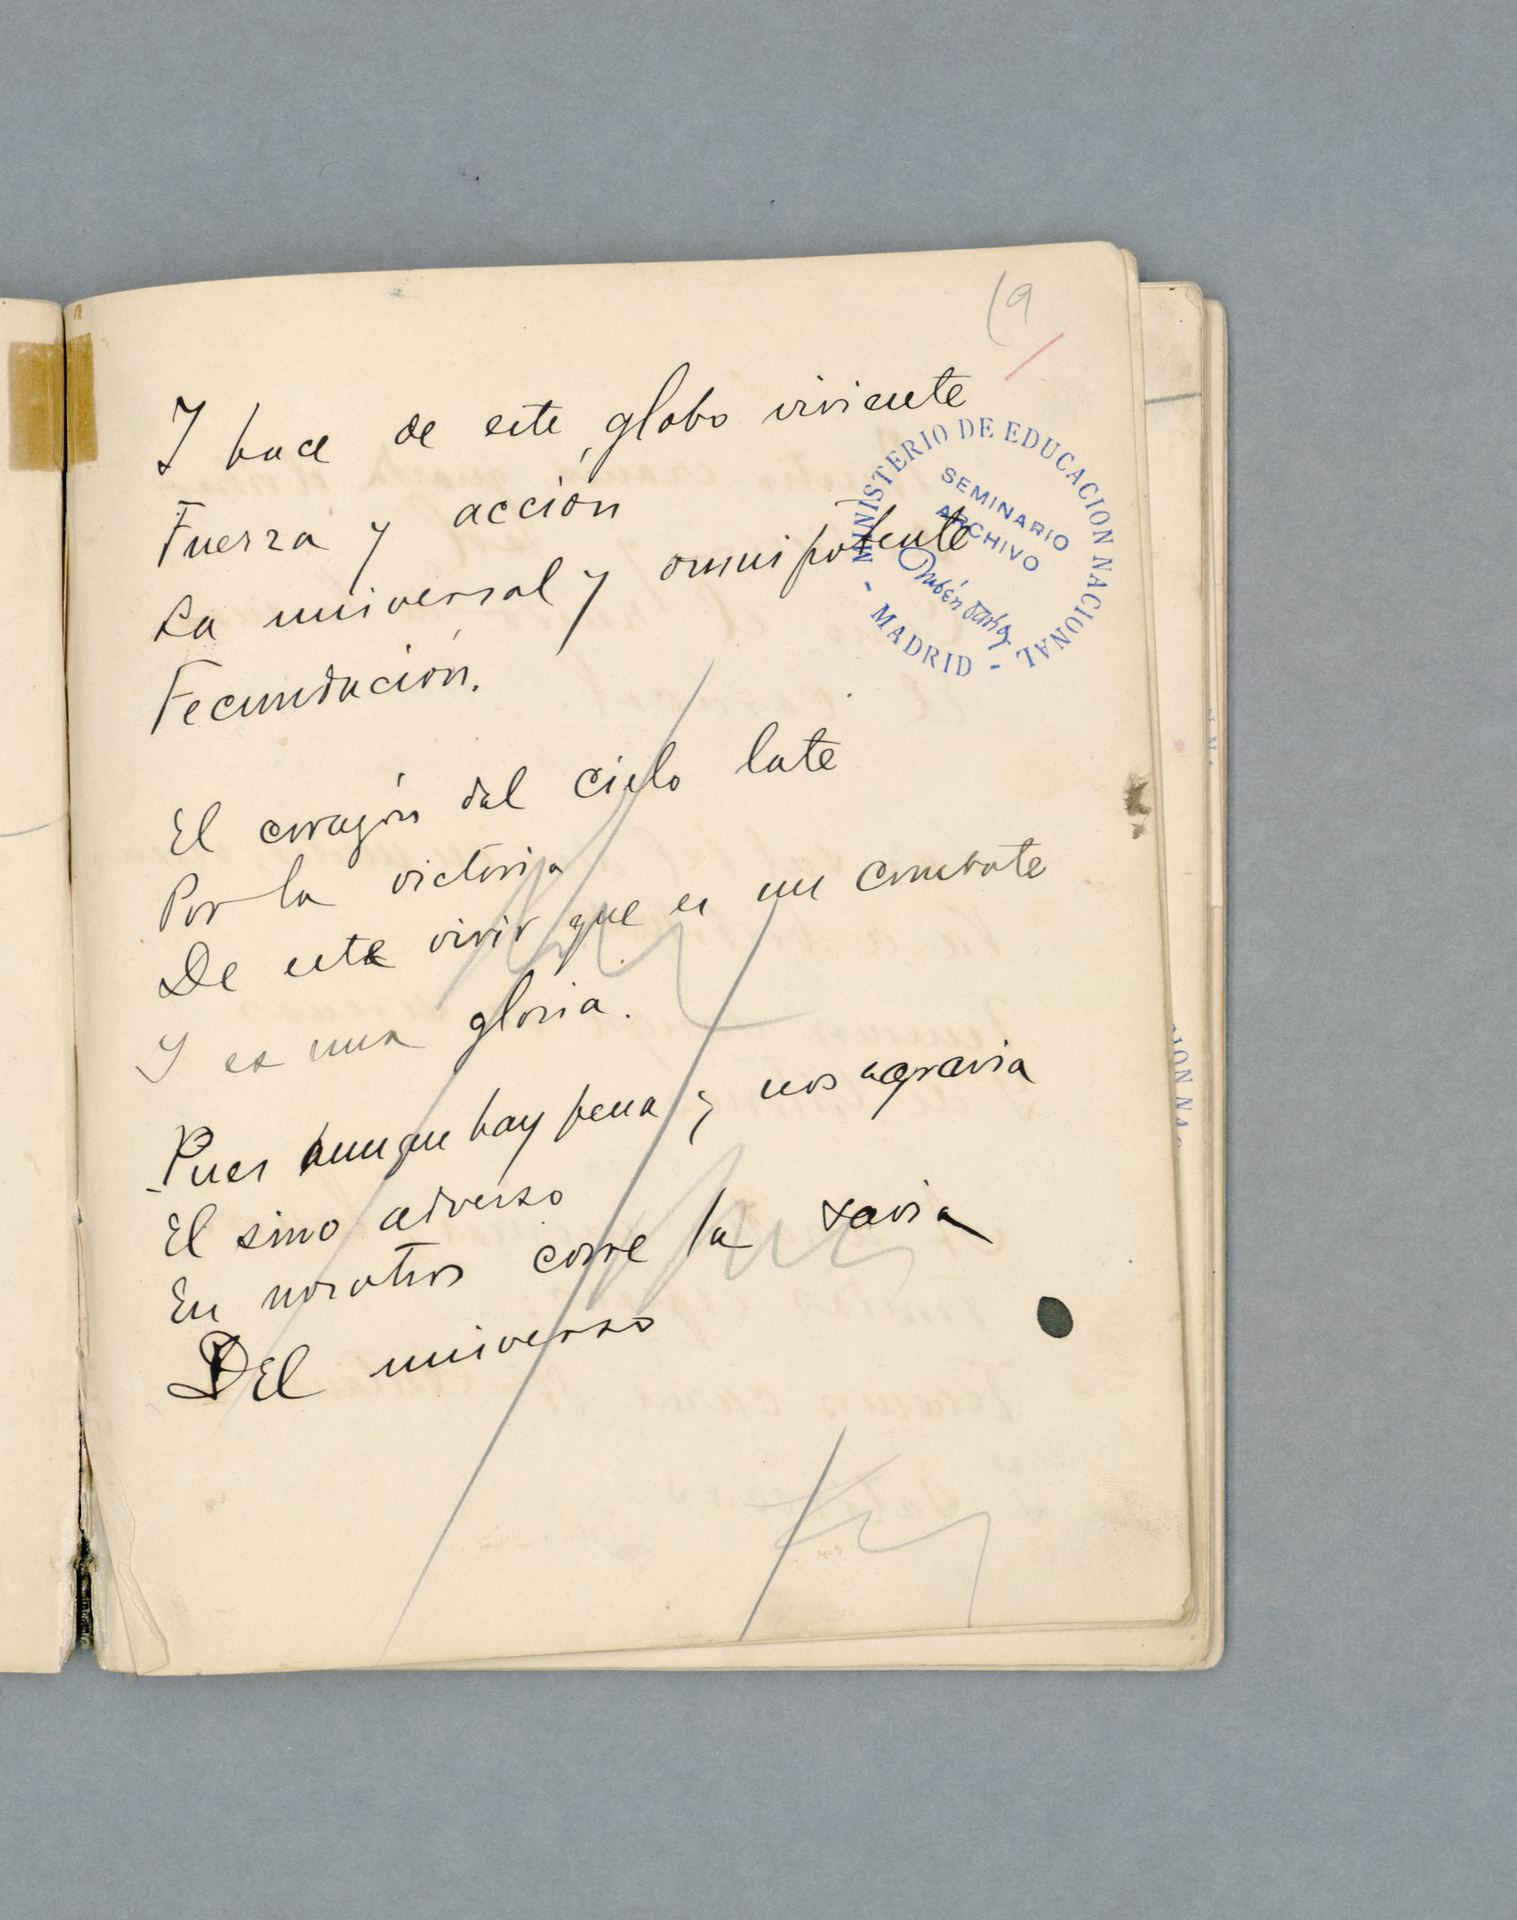 (9
Y hace de este globo viviente
Fuerza y acción
La universal y omnipotente
Fecundación.
El corazón del cielo late
Por la victoria
De este vivir que es un combate
Y es una gloria.
Pues aunque hay pena y nos agravia
El sino adverso
En nosotros corre la savia
Del universo
MINISTERIO DE EDUCACION NACIONAL
- MADRID -
SEMINARIO
ARCHIVO
Rubén Darío
ION NAC